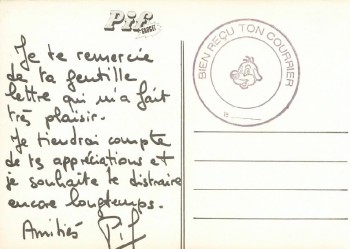 Pif
GADGET
BIEN REÇU TON COURRIER
Je te remercie
de ta gentille
lettre qui m'a fait
très plaisir.
Je tiendrai compte
de tes appréciations et
je souhaite te distraire
encore longtemps.
Amitiés Pif